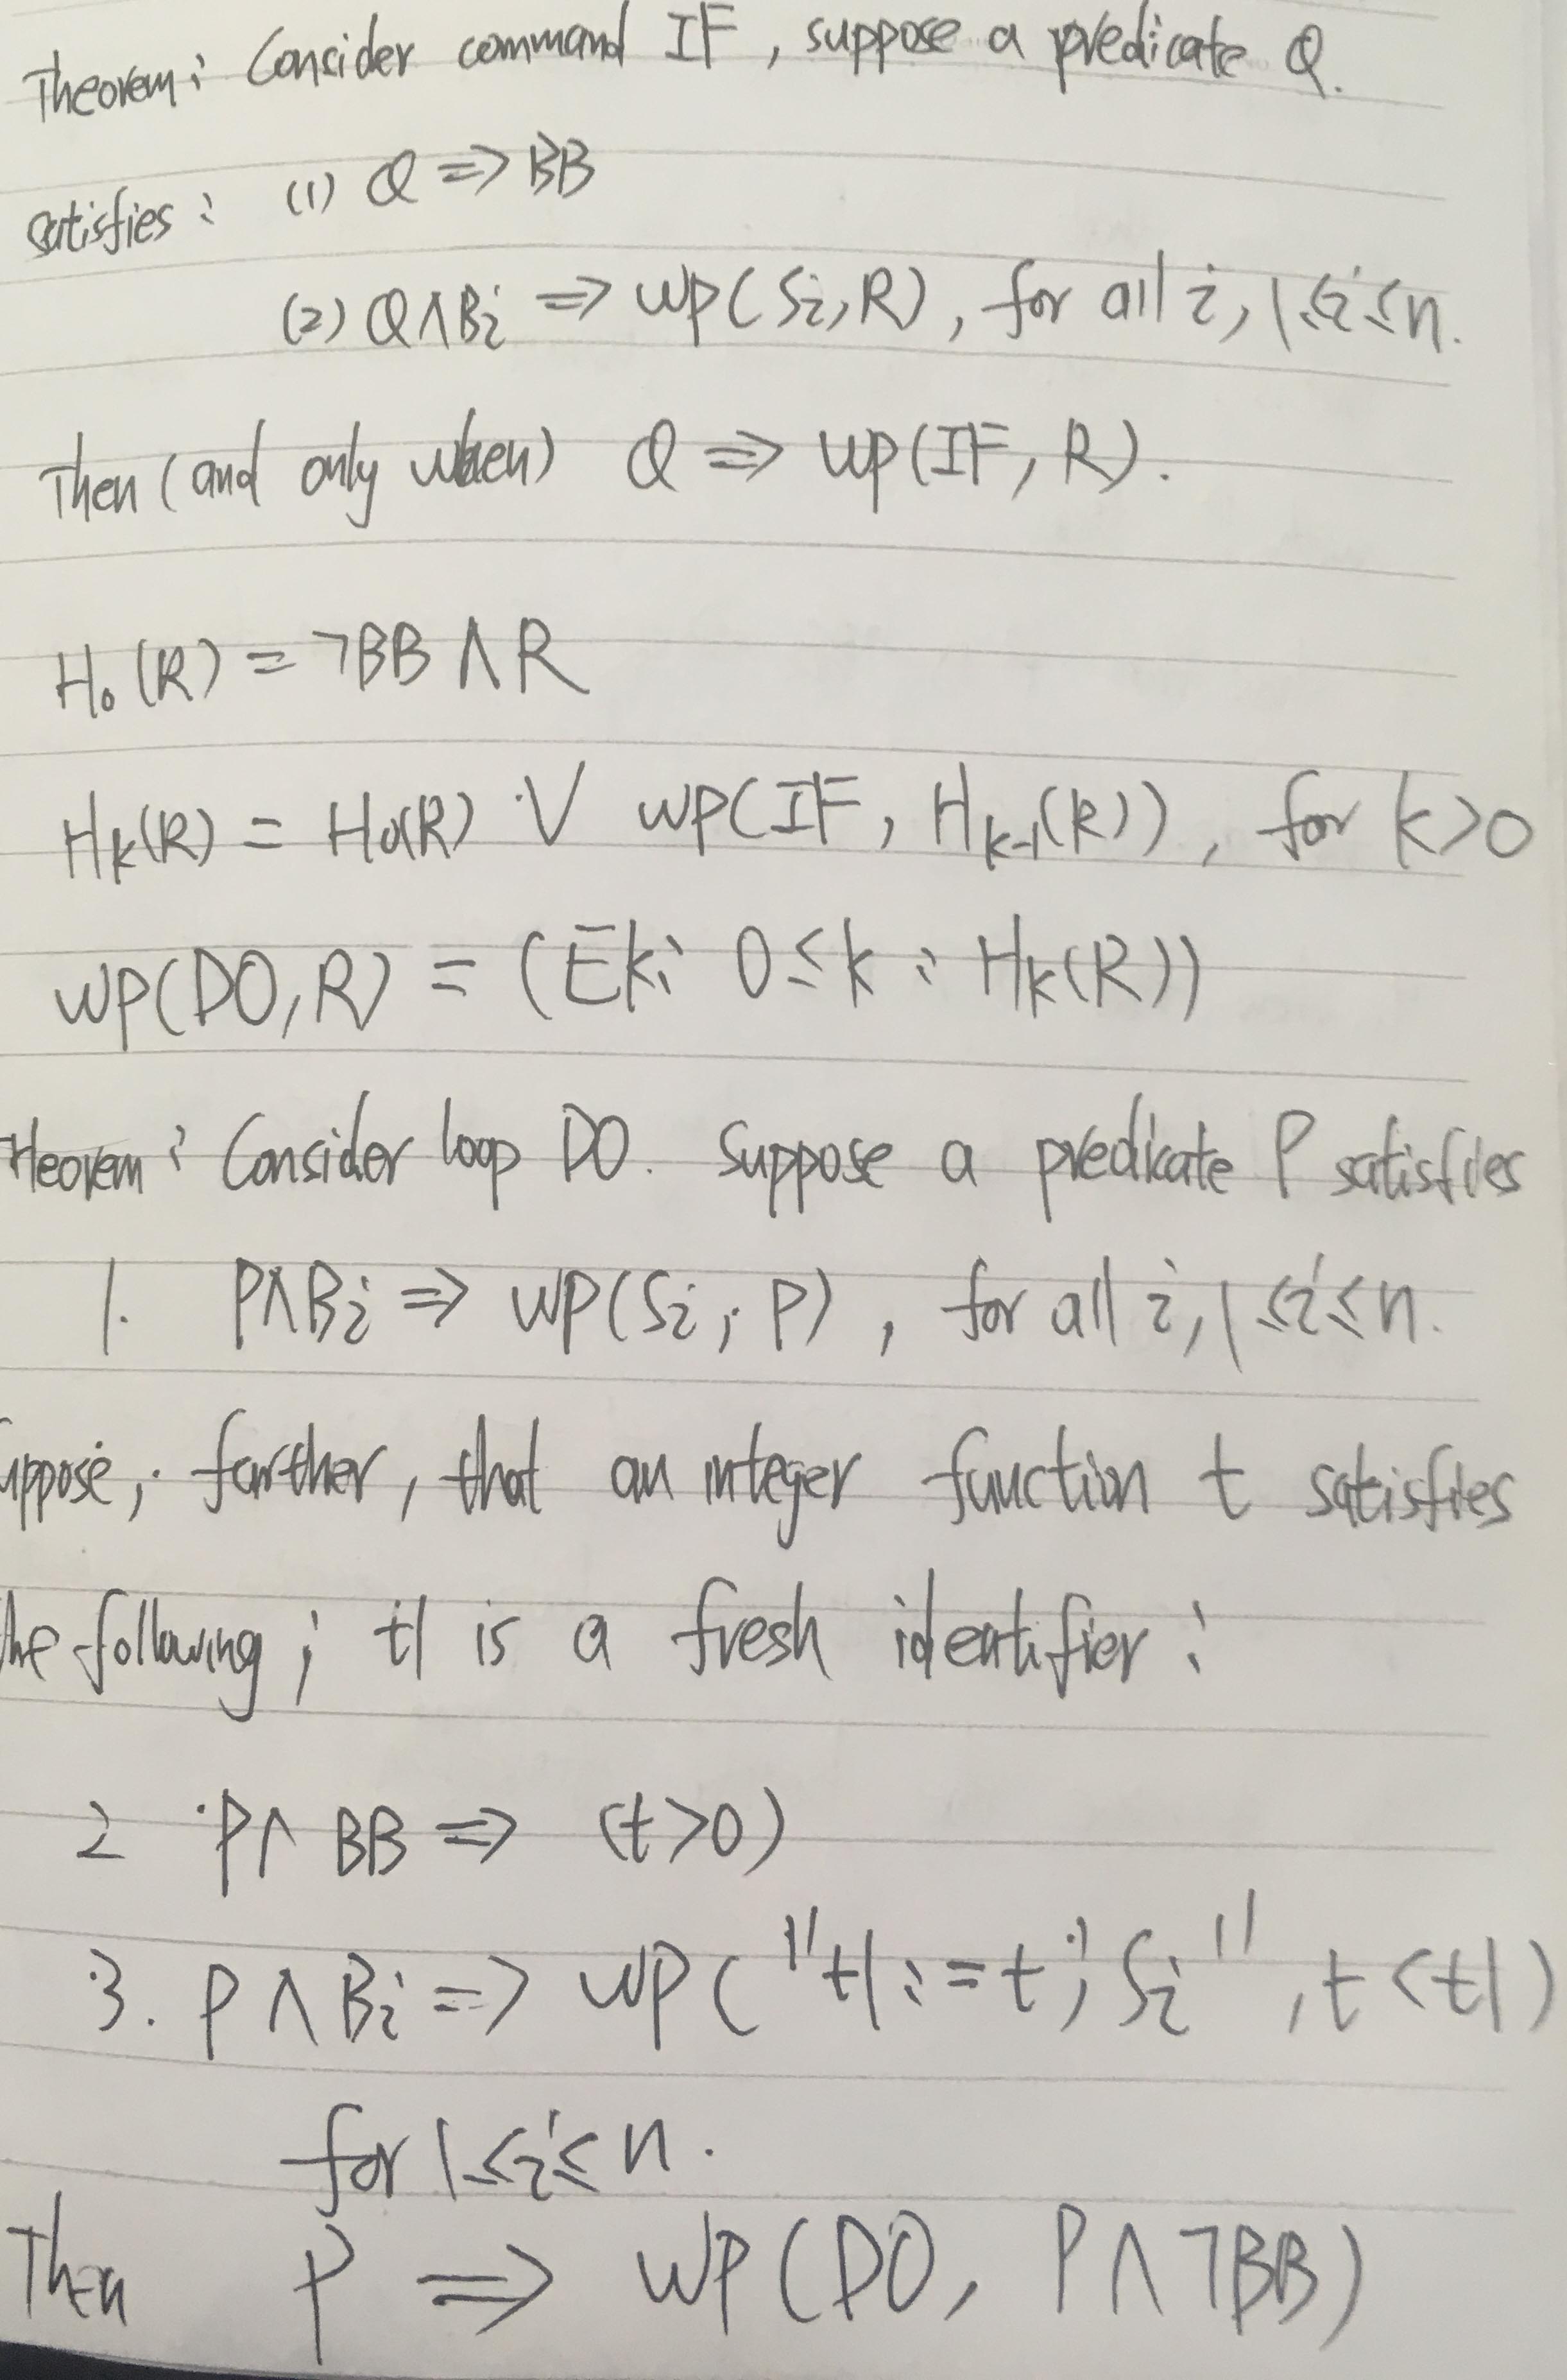 Theorem: Consider command IF, suppose a predicate Q.
satisfies: (1) Q ⇒ BB
(2) Q∧Bi ⇒ wp(Si,R), for all i, 1≤i≤n.
Then (and only when) Q ⇒ wp(IF, R).
H₀(R) = ¬BB ∧ R
Hk(R) = H₀(R) ∨ wp(IF, Hk-1(R)), for k>0
wp(DO,R) = (Ek: 0≤k: Hk(R))
Heorem: Consider loop DO. Suppose a predicate P satisfies
1. P∧Bi ⇒ wp(Si, P), for all i, 1≤i≤n.
uppose, further, that an integer function t satisfies
he following, t1 is a fresh identifier:
2 P∧ BB ⇒ (t>0)
3. P∧Bi ⇒ wp("t1:=t; Si", t<t1)
for 1≤i≤n.
Then P ⇒ wp(DO, P∧¬BB)